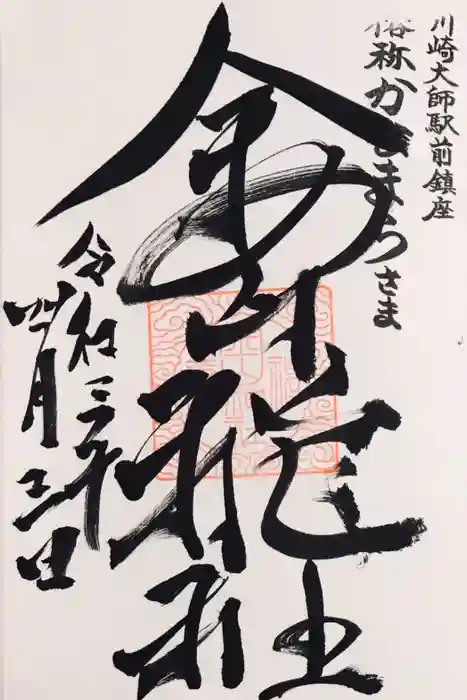 川崎大師駅前鎮座
俗称かなまらさま
金山神社
令和三年
四月三日